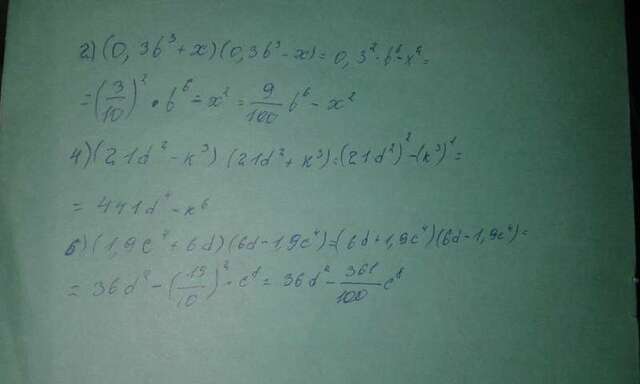 2) (0,3b³ + x)(0,3b³ - x) = 0,3² · b⁶ - x² =
= (3/10)² · b⁶ - x² = 9/100 b⁶ - x²
4) (21d² - k³)(21d² + k³) = (21d²)² - (k³)² =
= 441d⁴ - k⁶
6) (1,9c⁴ + 6d)(6d - 1,9c⁴) = (6d + 1,9c⁴)(6d - 1,9c⁴) =
= 36d² - (19/10)² - c⁸ = 36d² - 361/100 c⁸